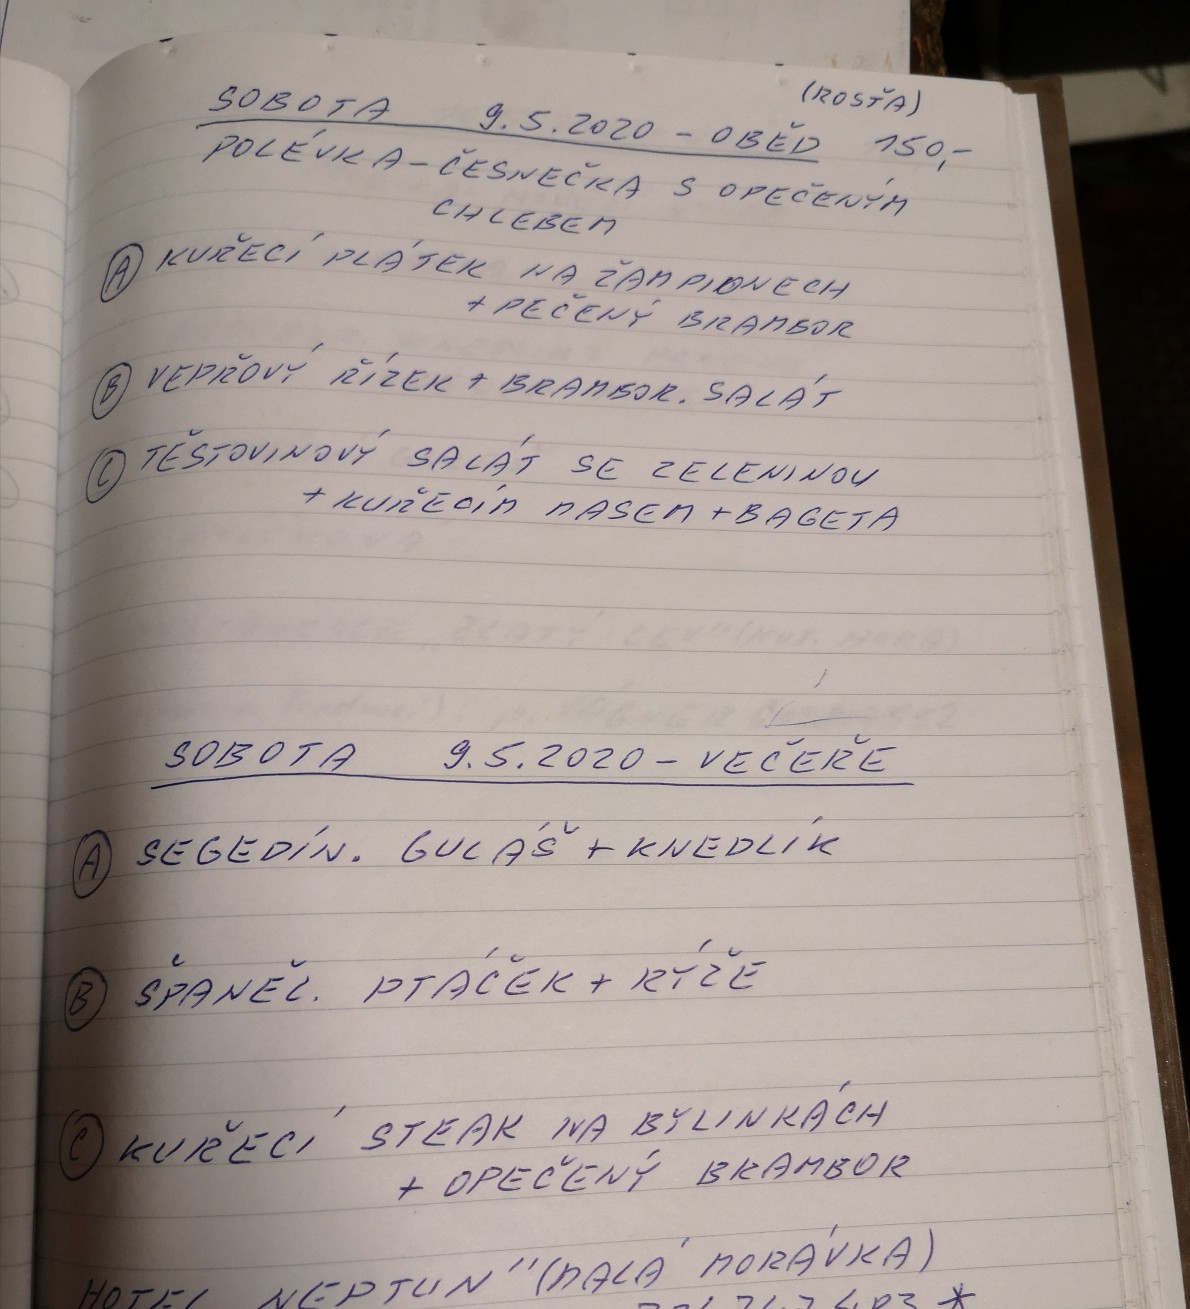 (ROSŤA)
SOBOTA 9.5.2020 - OBĚD 150,-
POLÉVKA - ČESNEČKA S OPEČENÝM
CHLEBEM
A KUŘECÍ PLÁTEK NA ŽAMPIONECH
+ PEČENÝ BRAMBOR
B VEPŘOVÝ ŘÍZEK + BRAMBOR. SALÁT
C TĚSTOVINOVÝ SALÁT SE ZELENINOU
+ KUŘECÍM MASEM + BAGETA
SOBOTA 9.5.2020 - VEČEŘE
A SEGEDÍN. GULÁŠ + KNEDLÍK
B ŠPANĚL. PTÁČEK + RÝŽE
C KUŘECÍ STEAK NA BYLINKÁCH
+ OPEČENÝ BRAMBOR
HOTEL NEPTUN" (MALÁ MORÁVKA)